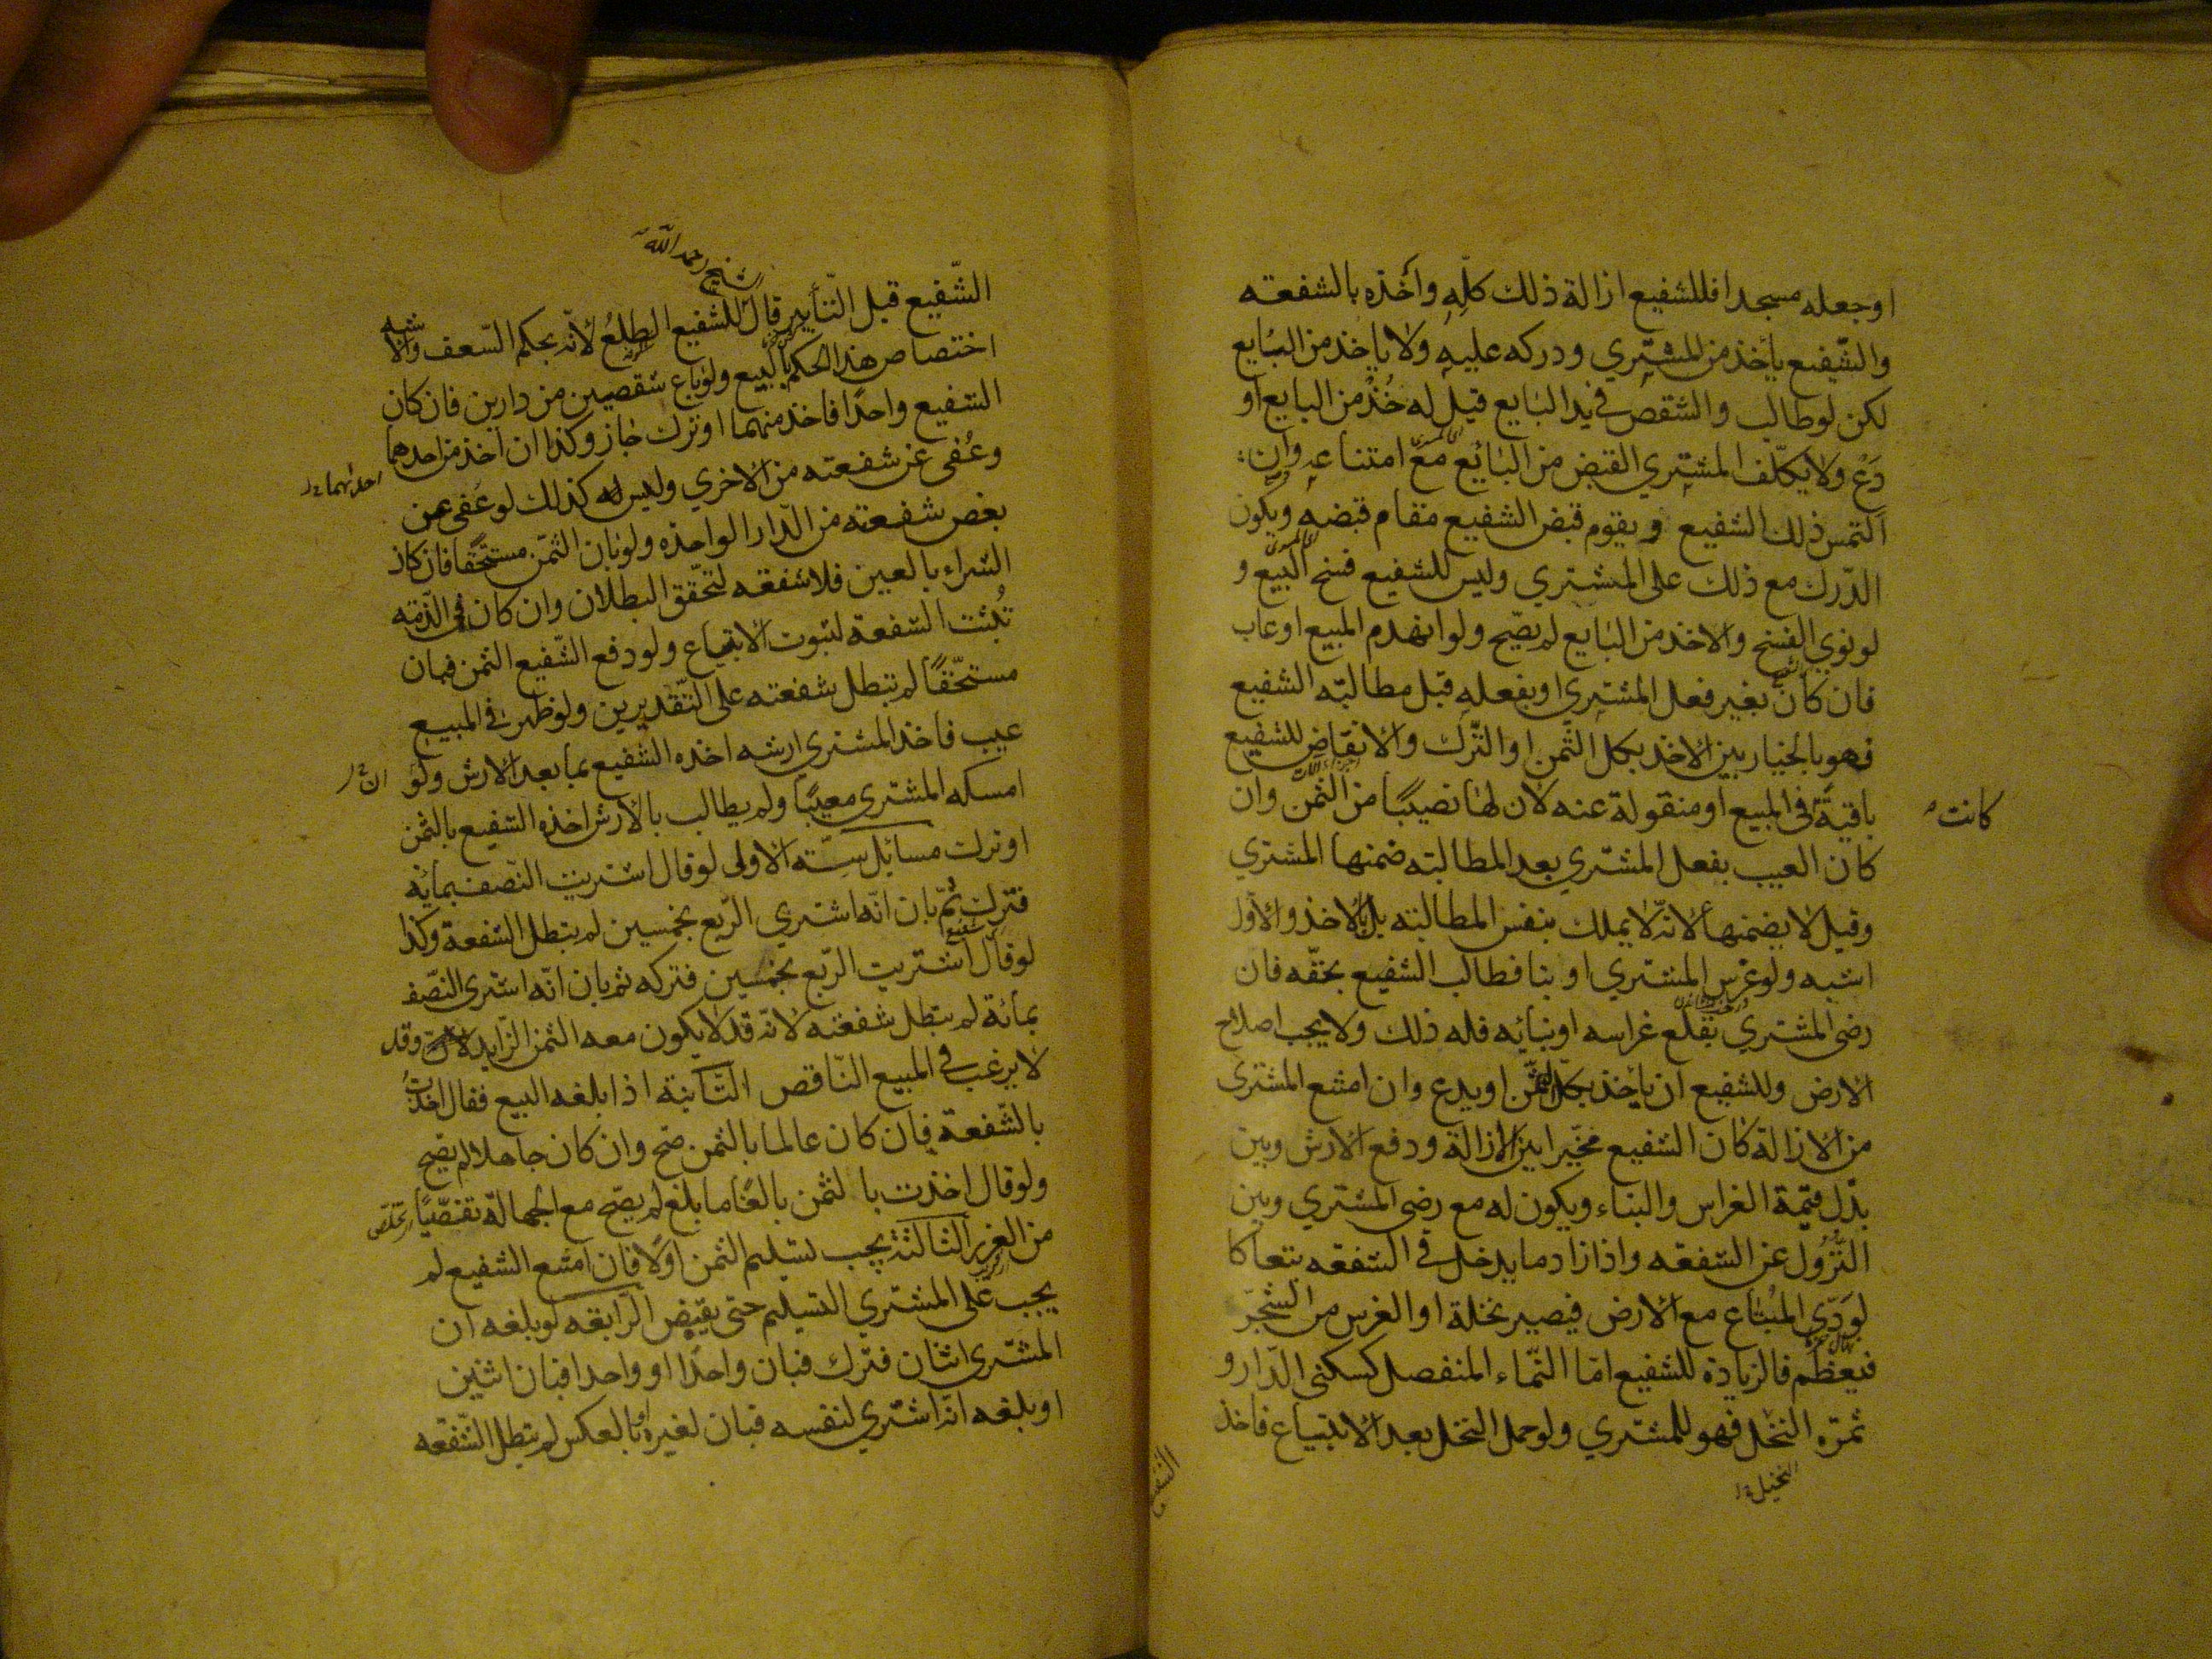 او جعله مسجدا فللشفيع ازالة ذلك كلّه وأخذه بالشفعته
والشّفيع يأخذ من المشتري ودركه عليه ولا ياخذ من البايع
لكن لو طالب والشقص في يد البايع قيل له خُذْ من البايع او
دَعْ ولا يكلّف المشتري القبض من البائع معَ امتناعه وان
التمس ذلك الشفيع ويقوم قبض الشفيع مقام قبضه ويكون
الدّرك مع ذلك على المشتري وليس للشفيع فسخ البيع و
لو نوي الفسخ والاخذ من البايع لم يصّح ولو انهدم المبيع او عاب
فان كان بغير فعل المشتري او بفعله قبل مطالبته الشفيع
فهو بالخيار بين الاخذ بكل الثّمن او التّرك والانقاض للشفيع
باقيةً في المبيع او منقولة عنه لان لها نصيبًا من الثمن وان
كانت
كان العيب بفعل المشتري بعد المطالبته ضمنها المشتري
وقيل لا يضمنها لانّه لا يملك بنفس المطالبته بل بالاخذ والاوّل
اشبه ولو غرس المشتري او بنا فطالب الشفيع بحقّه فان
رضى المشتري بقلع غراسه او بنائه فله ذلك ولا يجب اصلاح
الارض وللشفيع ان يأخذ بكلّ الثمّن او يدع وان امتنع المشتري
من الازالة كان الشفيع مخيّرا بين الازالة ودفع الارش وبين
بذل قيمة الغراس والبناء ويكون له مع رضى المشتري وبين
النّزول عن الشفعه واذا زاد ما يدخل في الشفعه تبعا كا
لودّي المبُتاع مع الارض فيصير نخلة او الغرس من الشجّر
فيعظم فالزيادة للشفيع امّا النّماء المنفصل كسكنى الدّار و
ثمرّه النخل فهو للمشتري ولو حمل النخل بعد الابتياع فاخذ
النخيل
الشفيع
شيخ رحمه الله
الشّفيع قبل التّأبير قال للشفيع الطلعُ لانّه بحكم السّعف والاشبه
اختصاص هذا الحكم بالبيع ولو باع شقصين من دارين فان كان
الشفيع واحدًا فاخذ منهما او ترك جاز وكذا ان اخذ من احدهما
احديهما
وعُفى عن شفعته من الاخري وليس له كذلك لو عُفى عن
بعض شفعته من الدّار الواحذه ولو بان الثمّن مستحّقا فان كان
الشراء بالعين فلا شفعه لتحّقق البطلان وان كان في الذّمه
تُبثت الشفعة لثبوت الابتياع ولو دفع الشّفيع الثمن فبان
مستحّقًا لم تبطل شفعته على التّقديرين ولو ظهر في المبيع
عيب فاخذ المشتري ارشه اخذه الشفيع بما بعد الارش ولو
ان
امسكه المشتري معيبًا ولم يطالب بالارش اخذه الشفيع بالثمن
او ترك مسائل ستّه الاولى لو قال اشتريت النّصف بمائه
فترك ثمّ بان انّه اشتري الرّبع بخمسين لم تبطل الشفعة وكذا
لو قال اشتريت الرّبع بخمسين فتركه ثم بان انّه اشتري النّصف
بمائة لم تبطل شفعته لانّه قد لا يكون معه الثمن الزّايد وقد
لا يرغب في المبيع النّاقص الثّانية اذا بلغه البيع فقال اخذت
بالشّفعة فان كان عالما بالثمن صح وان كان جاهلا لم يصّح
ولو قال اخذت بالثمن بالغًا ما بلغ لم يصّح مع الجهالّة تفصّيًا
من الغرر الثالثة يجب تسليم الثمن اوّلا فان امتنع الشفيع لم
يجب على المشتري التسليم حتى يقبض الرّابعه لو بلغه ان
المشتري اثنان فترك فبان واحدًا او واحدا فبان اثنين
او بلغه انّه اشتري لنفسه فبان لغيره او بالعكس لم تبطل الشّفعه